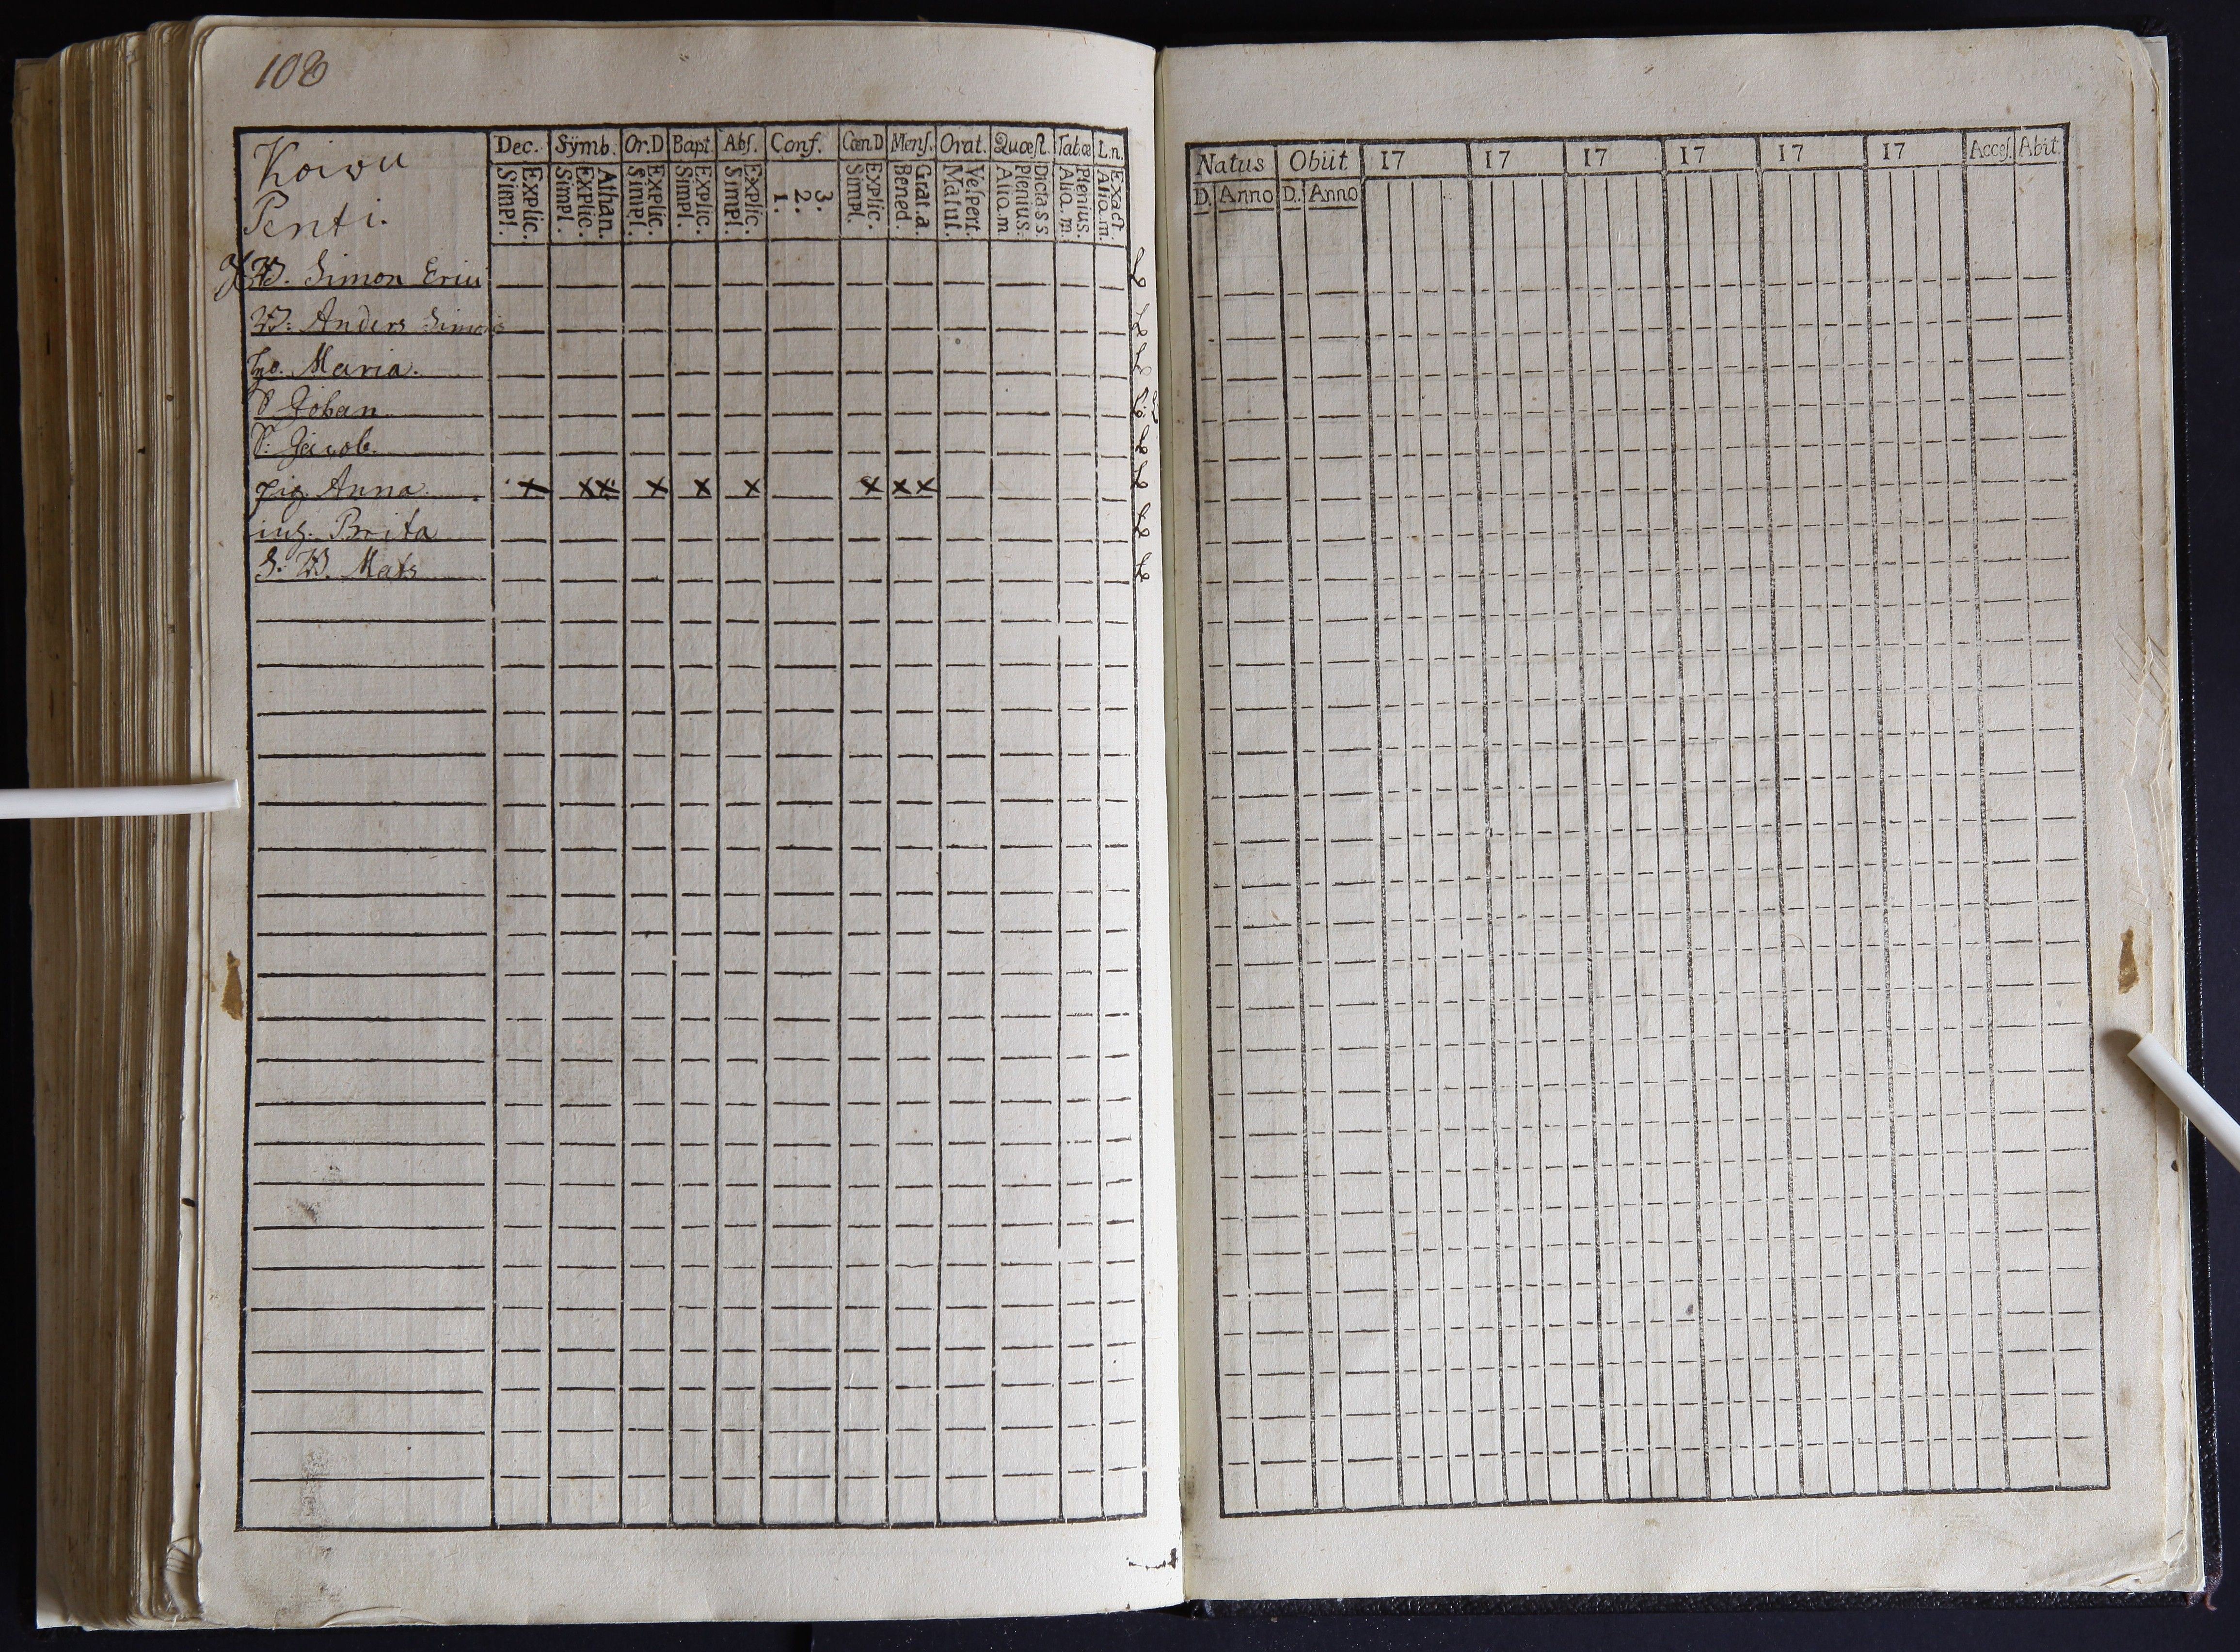 108
Koivu
Penti.
Dec. Symb. Or.D Bapt. Abſ. Conf. Cœn.D Menſ. Orat. Quœſt. Tabœ L.n.
Simpl. Explic. Simpl. Explic. Athan. Simpl. Explic. Simpl. Explic. Simpl. Explic. 1. 2. 3. Simpl. Explic. Bened. Grat.a. Matut. Veſpert. Alio.m Plenius. Dicta s s. Alio.m. Plenius. Alio.m. Exact.
W. Simon Erici
W: Anders Simons
Maria.
Johan
Jacob.
pig. Anna x xx x x x x xx
Brita
S. W. Mats
Natus Obiit 17 17 17 17 17 17 Acceſ. Abit
D. Anno D. Anno